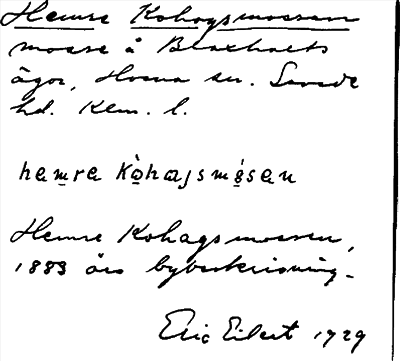 Hemre Kohagsmossen
mosse å Braxhults
ägor, Hovma sn. Sunde
hd. Klm. l.
hemre kòhaʃsmósen
Hemre Kohagsmossen,
1883 års bybeskrivning.
Eric Eilert 1929